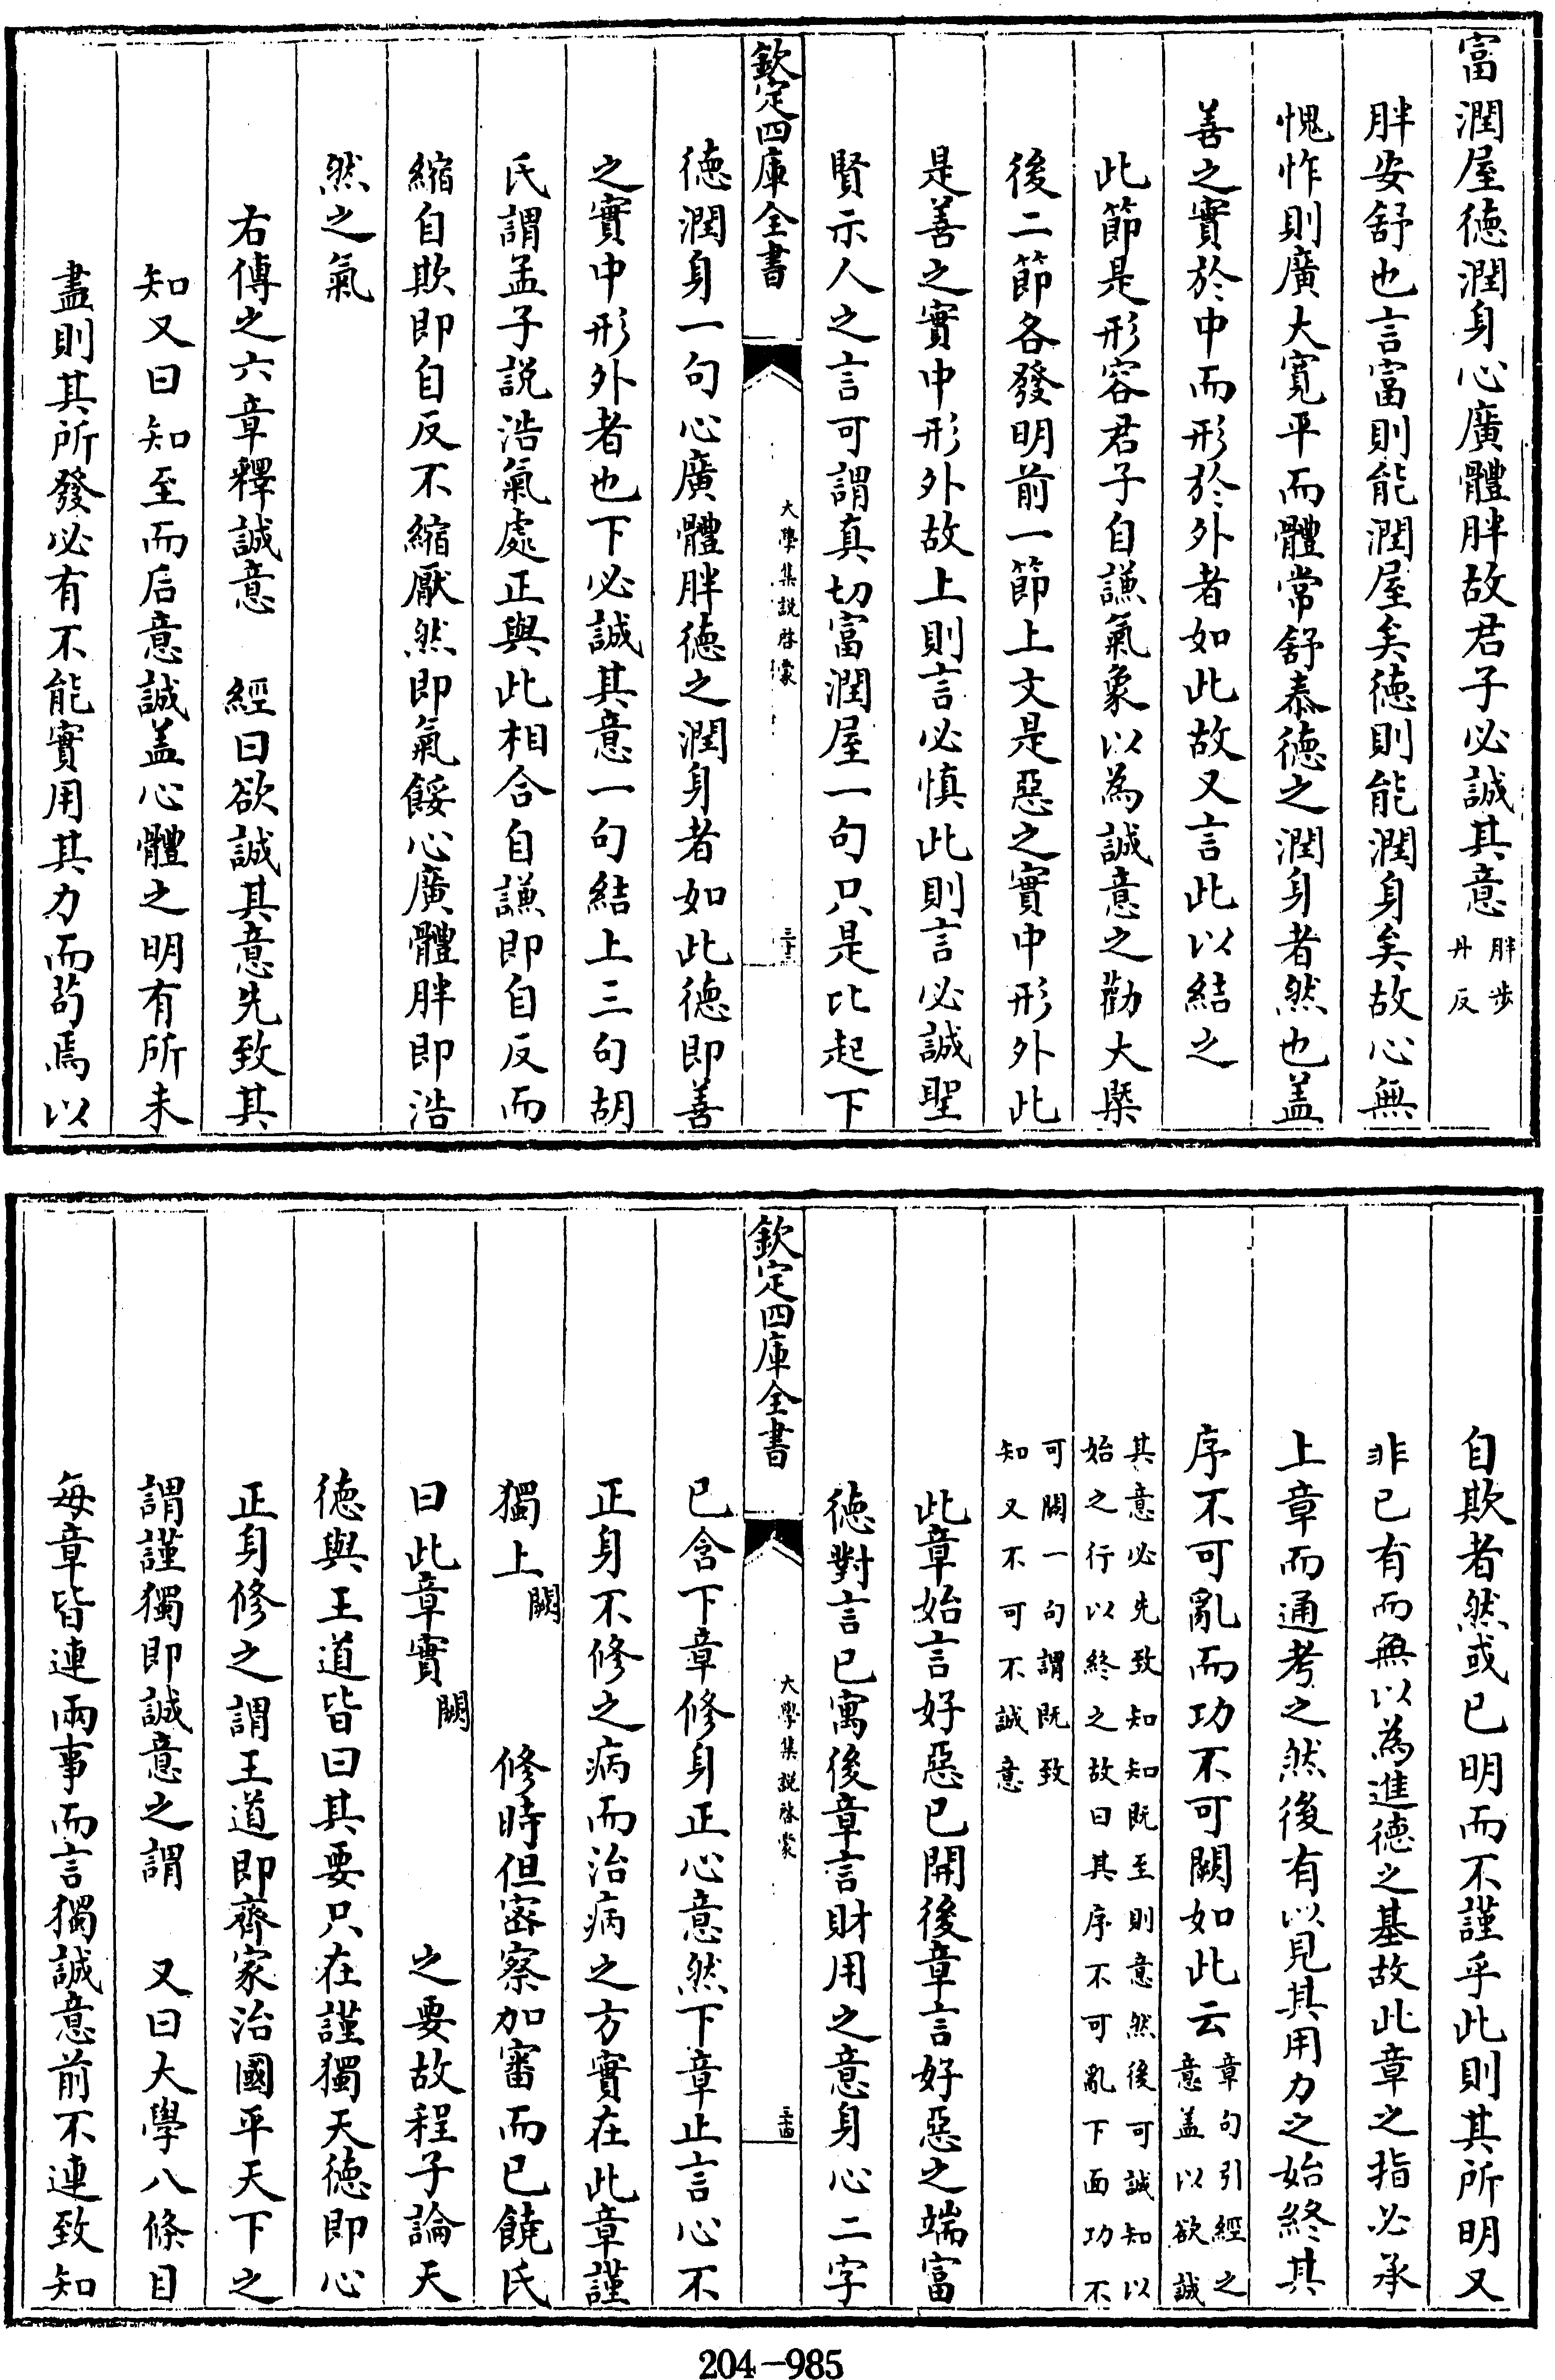 富潤屋德潤身心廣體胖故君子必誠其意胖步丹反
胖安舒也言富則能潤屋矣德則能潤身矣故心無
愧怍則廣大寛平而體常舒泰德之潤身者然也盖
善之實於中而形於外者如此故又言此以結之
此節是形容君子自謙氣象以為誠意之勸大槩
後二節各發明前一節上文是惡之實中形外此
是善之實中形外故上則言必慎此則言必誠聖
賢示人之言可謂真切富潤屋一句只是比起下
欽定四庫全書
大學集說啓蒙
三十三
德潤身一句心廣體胖德之潤身者如此德即善
之實中形外者也下必誠其意一句結上三句胡
氏謂孟子説浩氣處正與此相合自謙即自反而
縮自欺即自反不縮厭然即氣餒心廣體胖即浩
然之氣
右傳之六章釋誠意　經曰欲誠其意先致其
知又曰知至而后意誠盖心體之明有所未
盡則其所發必有不能實用其力而茍焉以
自欺者然或已明而不謹乎此則其所明又
非已有而無以為進德之基故此章之指必承
上章而通考之然後有以見其用力之始終其
序不可亂而功不可闕如此云章句引經之意盖以欲誠
其意必先致知知既至則意然後可誠知以
始之行以終之故曰其序不可亂下面功不
可闕一句謂既致
知又不可不誠意
此章始言好惡已開後章言好惡之端富
德對言已寓後章言財用之意身心二字
欽定四庫全書
大學集説啓蒙
三十四
已含下章修身正心意然下章止言心不
正身不修之病而治病之方實在此章謹
獨上闕　修時但密察加審而已饒氏
曰此章實闕　之要故程子論天
德與王道皆曰其要只在謹獨天德即心
正身修之謂王道即齊家治國平天下之
謂謹獨即誠意之謂　又曰大學八條目
每章皆連兩事而言獨誠意前不連致知
204-985